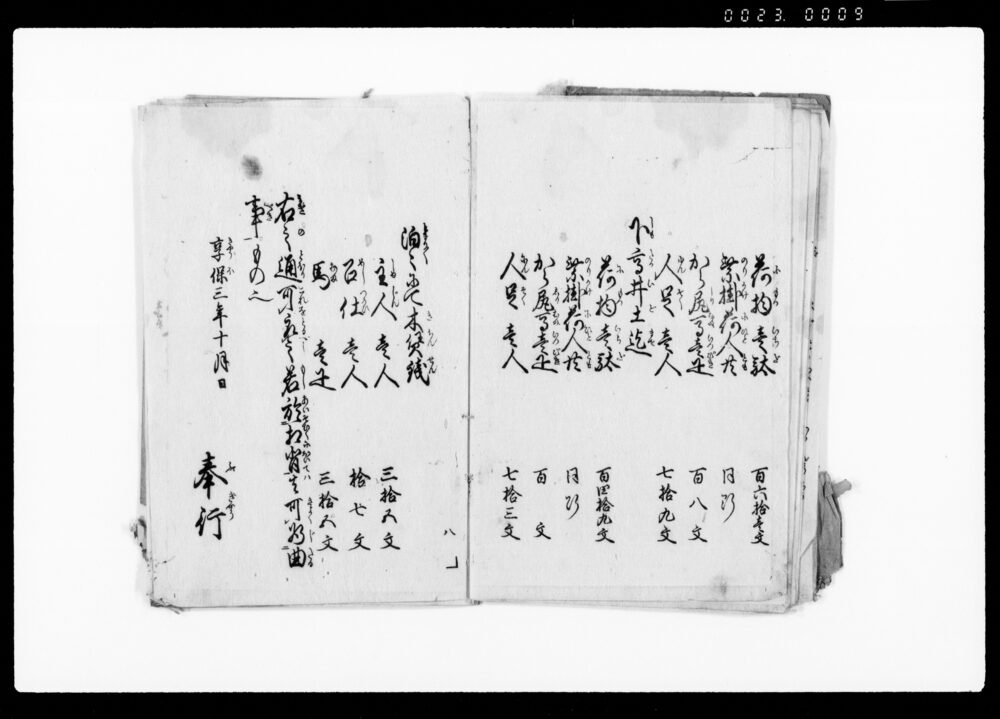 0023. 0009
荷物壱駄 百六拾壱文
乗掛荷人共 同断
から尻馬壱疋 百八文
人足壱人 七拾九文
下高井土迄
荷物壱駄 百四拾九文
乗掛荷人共 同断
から尻馬壱疋 百文
人足壱人 七拾三文
八
泊々にて木賃銭
主人壱人 三拾五文
召仕壱人 拾七文
馬壱疋 三拾五文
右之通可取之若於相背は可為曲
事もの也
享保三年十月日
奉行